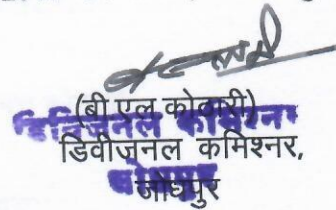 (बी एल कोठारी)
डिवीजनल कमिश्नर
डिवीजनल कमिश्नर,
जोधपुर